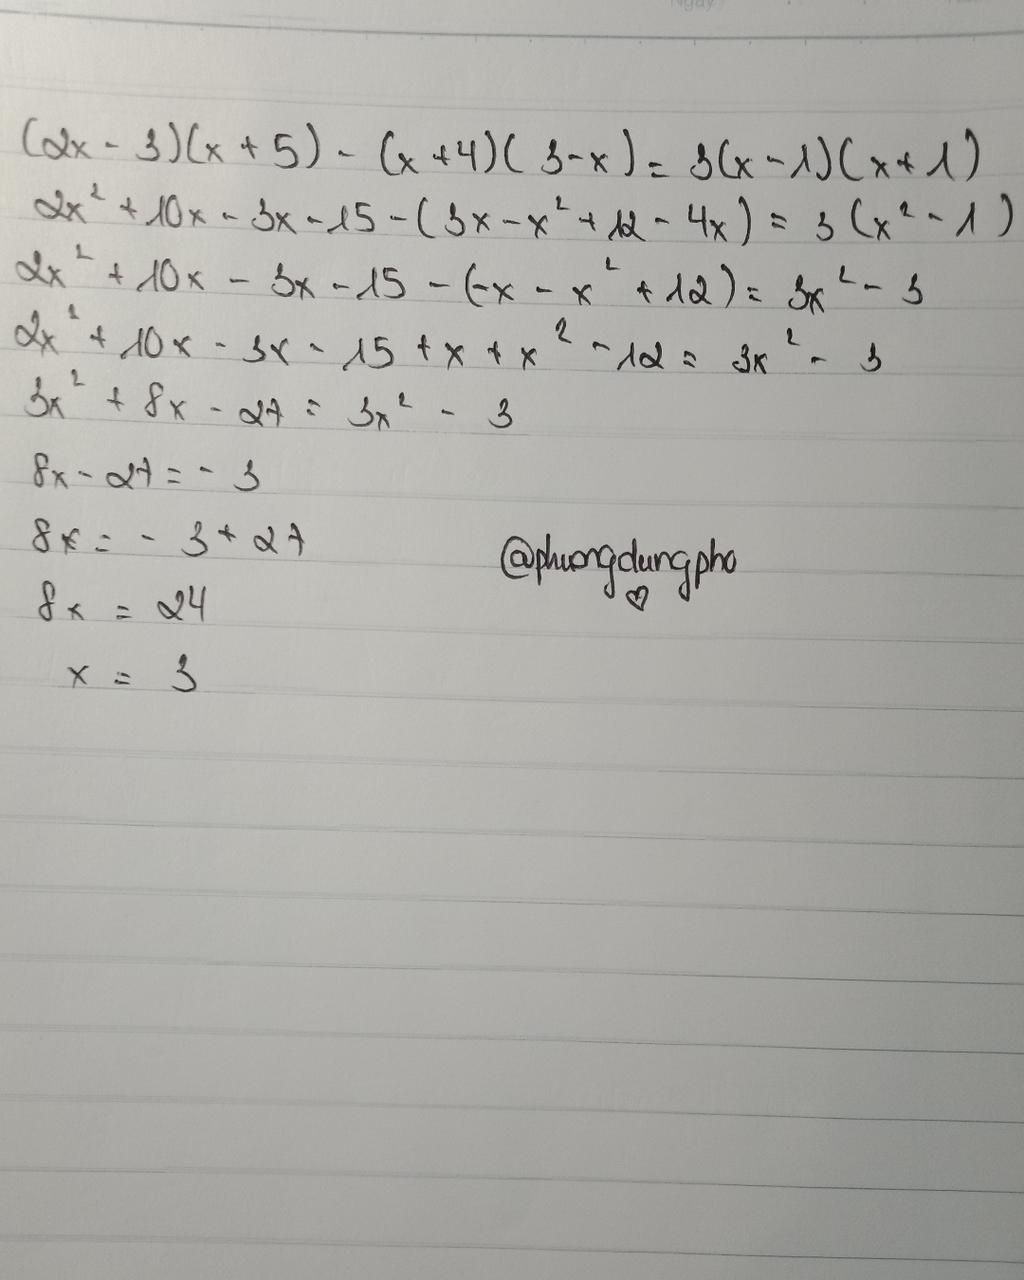 Ngày
(2x - 3)(x + 5) - (x + 4)( 3 - x ) = 3(x - 1)(x + 1)
2x² + 10x - 3x - 15 - ( 3x - x² + 12 - 4x ) = 3 (x² - 1 )
2x² + 10x - 3x - 15 - (-x - x² + 12 ) = 3x² - 3
2x² + 10x - 3x - 15 + x + x² - 12 = 3x² - 3
3x² + 8x - 27 = 3x² - 3
8x - 27 = - 3
8x = - 3 + 27
@phuongdungpho
♡
8x = 24
x = 3